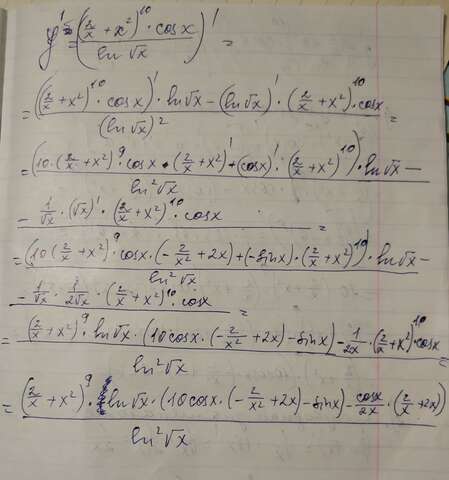 y' = ((2/x + x²)^10 · cosx / ln√x)' =
= (((2/x + x²)^10 · cosx)' · ln√x − (ln√x)' · (2/x + x²)^10 · cosx) / (ln√x)² =
= (10 · (2/x + x²)^9 · cosx · (2/x + x²)' + (cosx)' · (2/x + x²)^10) · ln√x − / ln²√x
− 1/√x · (√x)' · (2/x + x²)^10 · cosx =
= (10(2/x + x²)^9 · cosx · (−2/x² + 2x) + (−sinx) · (2/x + x²)^10) · ln√x − / ln²√x
− 1/√x · 1/2√x · (2/x + x²)^10 · cosx =
= ((2/x + x²)^9 · ln√x · (10cosx · (−2/x² + 2x) − sinx) − 1/2x · (2/x + x²)^10 · cosx) / ln²√x =
= ((2/x + x²)^9 · ln√x · (10cosx · (−2/x² + 2x) − sinx) − cosx/2x · (2/x + 2x)) / ln²√x